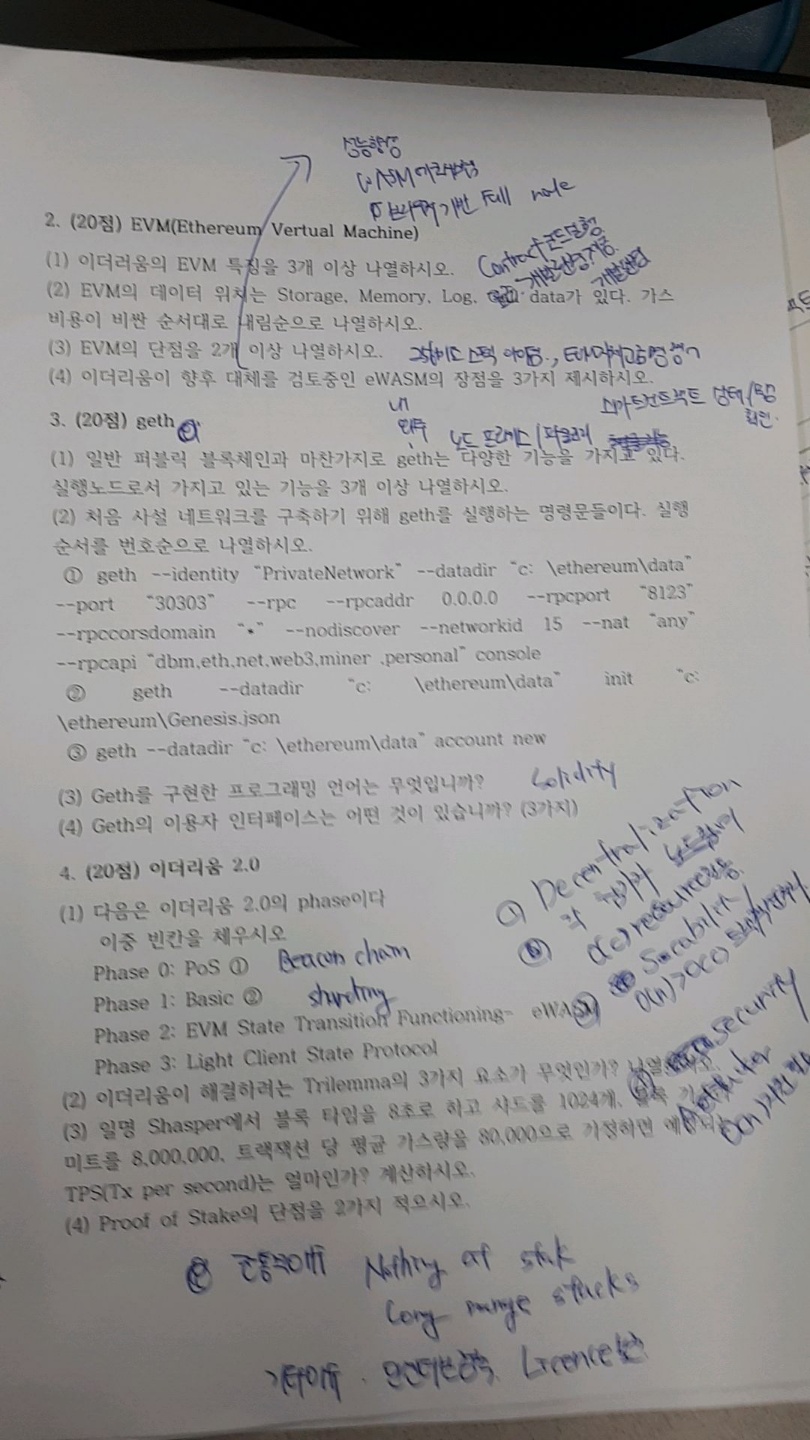 성능향상
WASM
기반 Full node
2. (20점) EVM(Ethereum Vertual Machine)
(1) 이더러움의 EVM 특징을 3개 이상 나열하시오. Contract 코드실행
(2) EVM의 데이터 위치는 Storage, Memory, Log, data가 있다. 가스
비용이 비싼 순서대로 내림순으로 나열하시오.
(3) EVM의 단점을 2개 이상 나열하시오.
(4) 이더리움이 향후 대체를 검토중인 eWASM의 장점을 3가지 제시하시오.
스마트컨트랙트 상태/
확인.
3. (20점) geth
(1) 일반 퍼블릭 블록체인과 마찬가지로 geth는 다양한 기능을 가지고 있다.
실행노드로서 가지고 있는 기능을 3개 이상 나열하시오.
(2) 처음 사설 네트워크를 구축하기 위해 geth를 실행하는 명령문들이다. 실행
순서를 번호순으로 나열하시오.
① geth --identity "PrivateNetwork" --datadir "c: \ethereum\data"
--port "30303" --rpc --rpcaddr 0.0.0.0 --rpcport "8123"
--rpccorsdomain "*" --nodiscover --networkid 15 --nat "any"
--rpcapi "dbm,eth,net,web3,miner ,personal" console
② geth --datadir "c: \ethereum\data" init "c:
\ethereum\Genesis.json
③ geth --datadir "c: \ethereum\data" account new
(3) Geth를 구현한 프로그래밍 언어는 무엇입니까? Solidity
(4) Geth의 이용자 인터페이스는 어떤 것이 있습니까? (3가지)
4. (20점) 이더리움 2.0
(1) 다음은 이더리움 2.0의 phase이다
이중 빈칸을 체우시오
Phase 0: PoS ① Beacon chain
Phase 1: Basic ② sharding
Phase 2: EVM State Transition Functioning- eWASM
Phase 3: Light Client State Protocol
Decentralization
O(c) resource
Scability
O(n)>O(c)
security
(2) 이더리움이 해결하려는 Trilemma의 3가지 요소가 무엇인가? 나열하시오.
(3) 일명 Shasper에서 블록 타임을 8초로 하고 샤드를 1024개, 블록
미트를 8,000,000, 트랙잭션 당 평균 가스량을 80,000으로 가정하면
TPS(Tx per second)는 얼마인가? 계산하시오.
(4) Proof of Stake의 단점을 2가지 적으시오.
Nothing at stak
Long range stacks